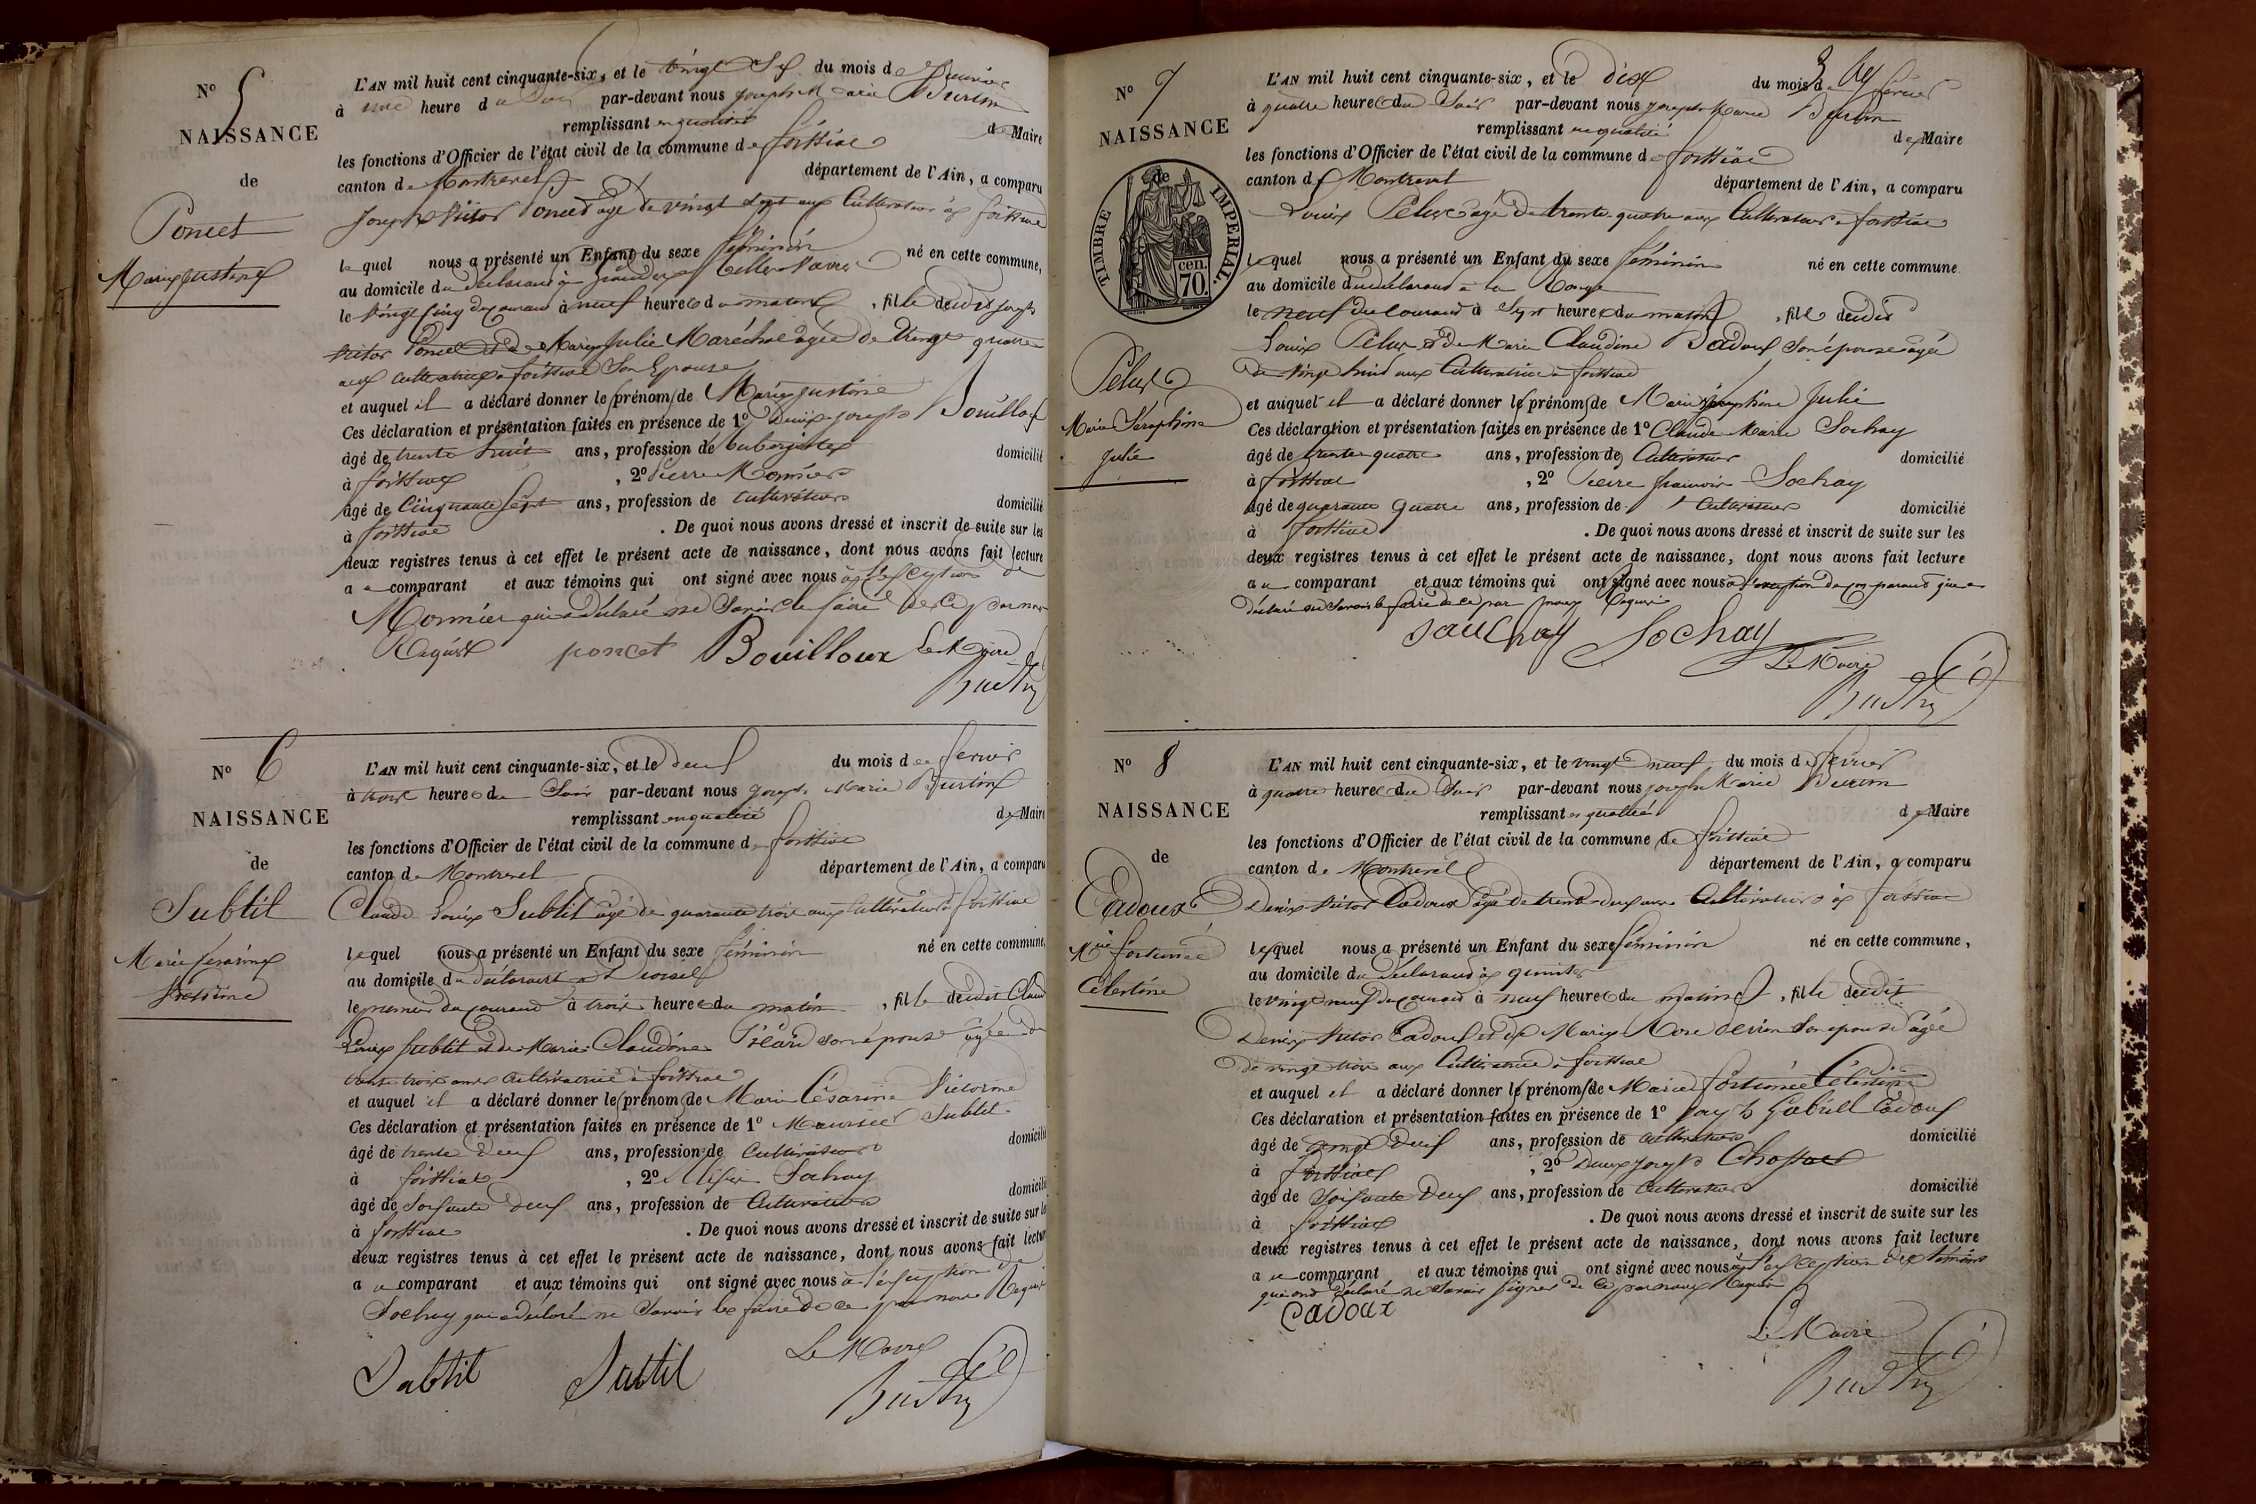 N.º 5
NAISSANCE
de
Poncet
Marie Justine
L'AN mil huit cent cinquante-six, et le vingt Six du mois de Janvier
à une heure du Soir par-devant nous Joseph Marie Burtin
remplissant en qualité de Maire
les fonctions d'Officier de l'état civil de la commune de foissiat
canton de Montrevel département de l'Ain, a comparu
Joseph Victor Poncet agé de vingt Sept ans Cultivateur à foissiat
lequel nous a présenté un Enfant du sexe féminin né en cette commune,
au domicile du déclarant
le Vingt Cinq du courant à neuf heures du matin, fille dudit Joseph
Victor Poncet et de Marie Julie Maréchal agée de trente quatre
ans cultivatrice à foissiat Son Epouse
et auquel il a déclaré donner les prénoms de Marie Justine
Ces déclaration et présentation faites en présence de 1º Denis Joseph Bouilloux
âgé de trente huit ans, profession de aubergiste domicilié
à foissiat, 2º Pierre Monnier
âgé de Cinquante Sept ans, profession de cultivateur domicilié
à foissiat. De quoi nous avons dressé et inscrit de suite sur les
deux registres tenus à cet effet le présent acte de naissance, dont nous avons fait lecture
au comparant et aux témoins qui ont signé avec nous à l'exception de
Monnier qui a déclaré ne Savoir le faire de ce par nous
Requis poncet Bouilloux Le Maire
Burtin
N.º 6
NAISSANCE
de
Subtil
Marie Césarine
Victorine
L'AN mil huit cent cinquante-six, et le deux du mois de fevrier
à trois heures du Soir par-devant nous Joseph Marie Burtin
remplissant en qualité de Maire
les fonctions d'Officier de l'état civil de la commune de foissiat
canton de Montrevel département de l'Ain, a comparu
Claude Louis Subtil agé de quarante trois ans Cultivateur à foissiat
lequel nous a présenté un Enfant du sexe féminin né en cette commune,
au domicile du déclarant
le premier du courant à trois heures du matin, fille dudit Claude
Louis Subtil et de Marie Claudine son épouse agée de
trente trois ans cultivatrice à foissiat
et auquel il a déclaré donner les prénoms de Marie Césarine Victorine
Ces déclaration et présentation faites en présence de 1º Subtil
âgé de trente deux ans, profession de Cultivateur domicilié
à foissiat, 2º Sochay
âgé de Soixante deux ans, profession de Cultivateur domicilié
à foissiat. De quoi nous avons dressé et inscrit de suite sur les
deux registres tenus à cet effet le présent acte de naissance, dont nous avons fait lecture
au comparant et aux témoins qui ont signé avec nous à l'exception de
Sochay qui a déclaré ne Savoir le faire de ce par nous Requis
Subtil Subtil Le Maire
Burtin
N.º 7
NAISSANCE
de
TIMBRE IMPERIAL
70 cen.
Pelux
Marie Séraphine
Julie
L'AN mil huit cent cinquante-six, et le dix du mois de février
à quatre heures du Soir par-devant nous Joseph Marie Burtin
remplissant en qualité de Maire
les fonctions d'Officier de l'état civil de la commune de foissiat
canton de Montrevel département de l'Ain, a comparu
Louis Pelux agé de trente quatre ans Cultivateur à foissiat
lequel nous a présenté un Enfant du sexe féminin né en cette commune
au domicile du déclarant à la
le neuf du courant à Sept heures du matin, fille dudit
Louis Pelux et de Marie Claudine Badoux Son épouse agée
de Vingt huit ans Cultivatrice à foissiat
et auquel il a déclaré donner les prénoms de Marie Séraphine Julie
Ces déclaration et présentation faites en présence de 1º Claude Marie Sochay
âgé de trente quatre ans, profession de Cultivateur domicilié
à foissiat, 2º Pierre françois Sochay
âgé de quarante quatre ans, profession de Cultivateur domicilié
à foissiat. De quoi nous avons dressé et inscrit de suite sur les
deux registres tenus à cet effet le présent acte de naissance, dont nous avons fait lecture
au comparant et aux témoins qui ont signé avec nous à l'exception du comparant qui a
déclaré ne Savoir le faire de ce par nous Requis
Sauchay Sochay
Le Maire
Burtin
N.º 8
NAISSANCE
de
Cadoux
Mie fortunée
Célestine
L'AN mil huit cent cinquante-six, et le vingt neuf du mois de février
à quatre heures du Soir par-devant nous Joseph Marie Burtin
remplissant en qualité de Maire
les fonctions d'Officier de l'état civil de la commune de foissiat
canton de Montrevel département de l'Ain, a comparu
Denis Victor Cadoux agé de trente deux ans Cultivateur à foissiat
lequel nous a présenté un Enfant du sexe féminin né en cette commune,
au domicile du déclarant à
le vingt neuf du courant à neuf heures du matin, fille dudit
Denis Victor Cadoux et de Marie Son épouse agée
de vingt trois ans Cultivatrice à foissiat
et auquel il a déclaré donner les prénoms de Marie fortunée Célestine
Ces déclaration et présentation faites en présence de 1º Joseph Gabriel Cadoux
âgé de ans, profession de cultivateur domicilié
à foissiat, 2º Denis Joseph
âgé de Soixante Deux ans, profession de Cultivateur domicilié
à foissiat. De quoi nous avons dressé et inscrit de suite sur les
deux registres tenus à cet effet le présent acte de naissance, dont nous avons fait lecture
au comparant et aux témoins qui ont signé avec nous à l'exception des témoins
qui ont déclaré ne Savoir signer de ce par nous Requis
Cadoux
Le Maire
Burtin